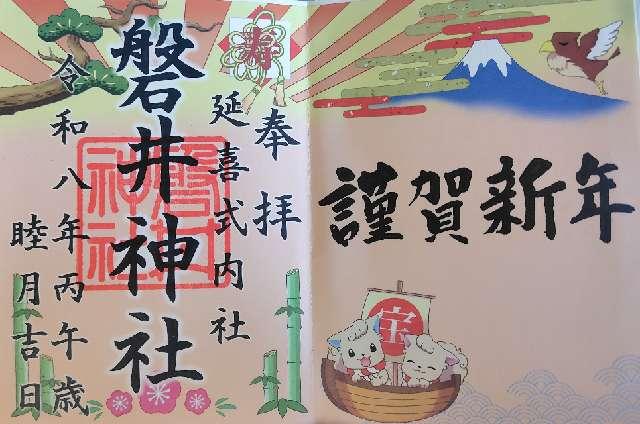 謹賀新年
宝
寿
奉拝
延喜式内社
磐井神社
磐井神社
令和八年丙午歳
睦月吉日